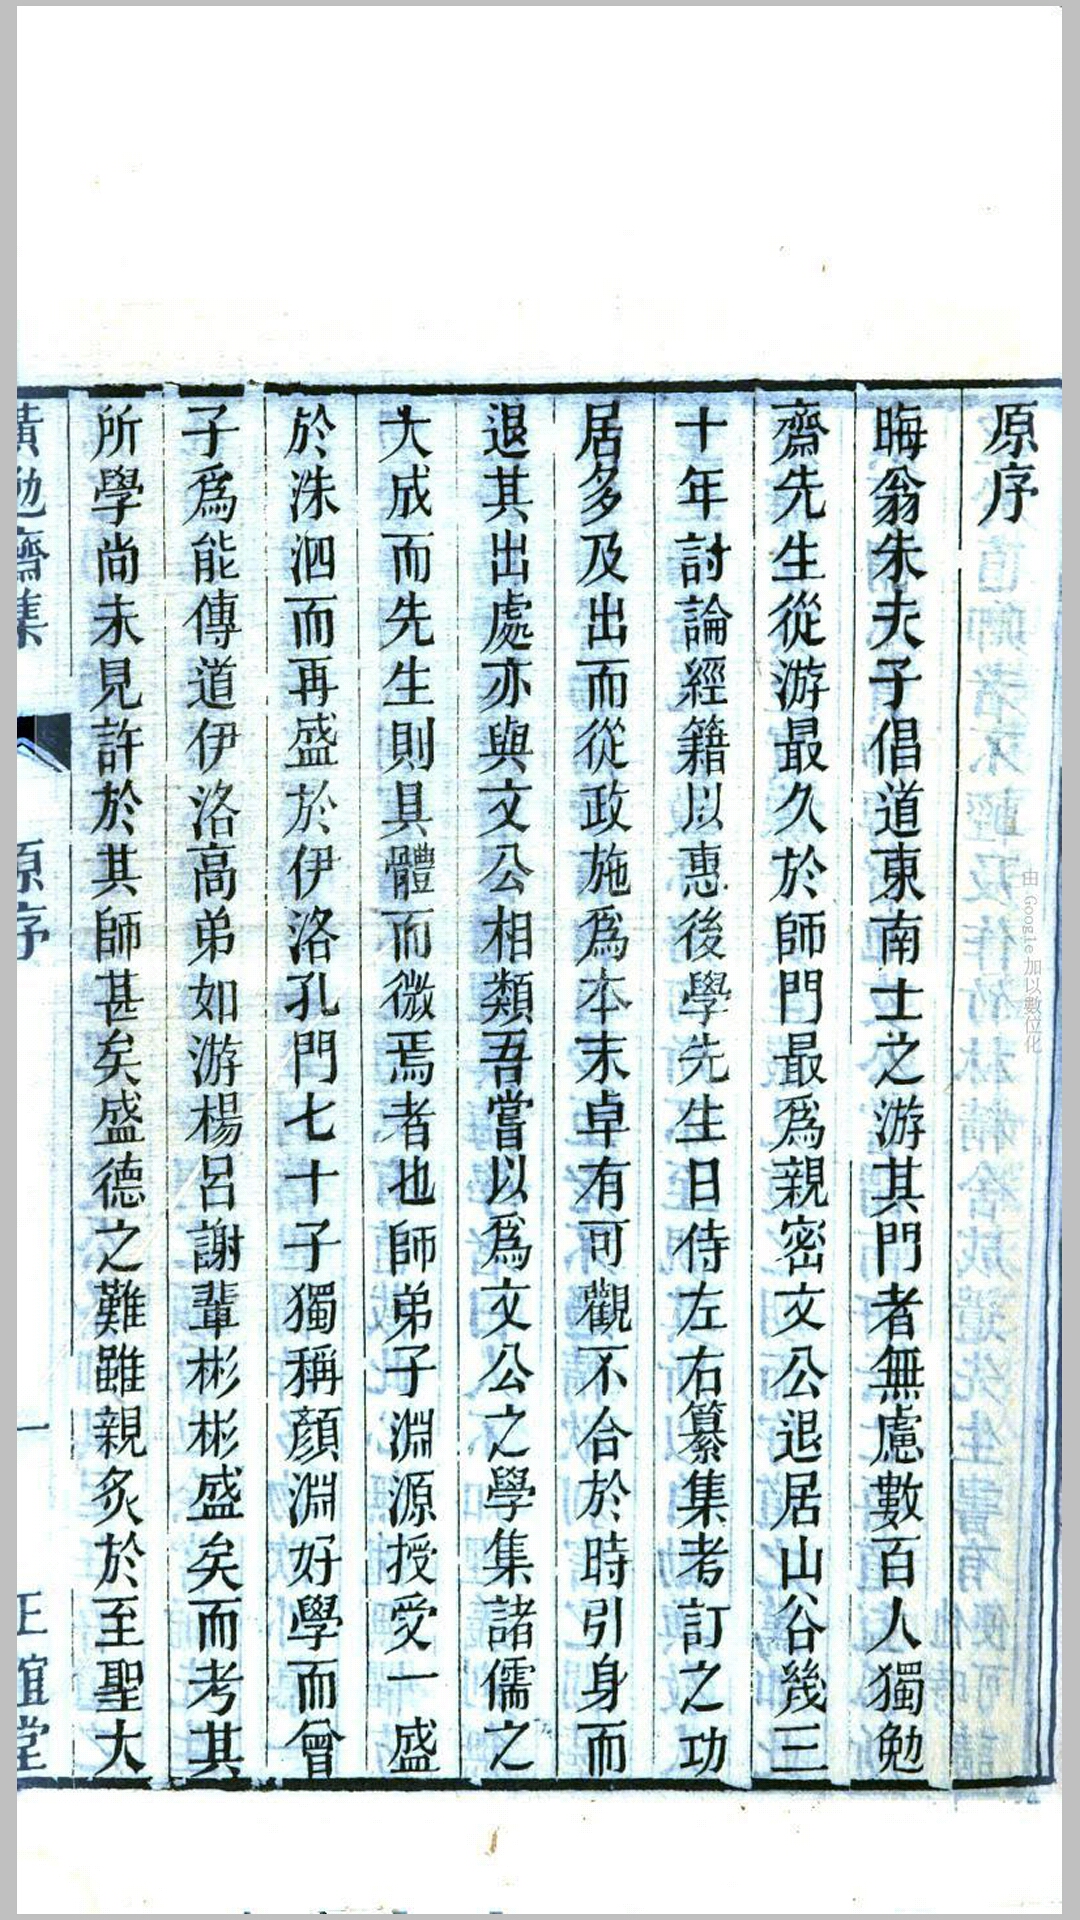 原序
晦翁朱夫子倡道東南士之游其門者無慮數百人獨勉
齋先生從游最久於師門最爲親密文公退居山谷幾三
十年討論經籍以惠後學先生日侍左右纂集考訂之功
居多及出而從政施爲本末卓有可觀不合於時引身而
退其出處亦與文公相類吾嘗以爲文公之學集諸儒之
大成而先生則具體而微焉者也師弟子淵源授受一盛
於洙泗而再盛於伊洛孔門七十子獨稱顏淵好學而曾
子爲能傳道伊洛高弟如游楊呂謝輩彬彬盛矣而考其
所學尚未見許於其師甚矣盛德之難雖親炙於至聖大
黃勉齋集 原序 一 正誼堂
由 Google 加以數位化